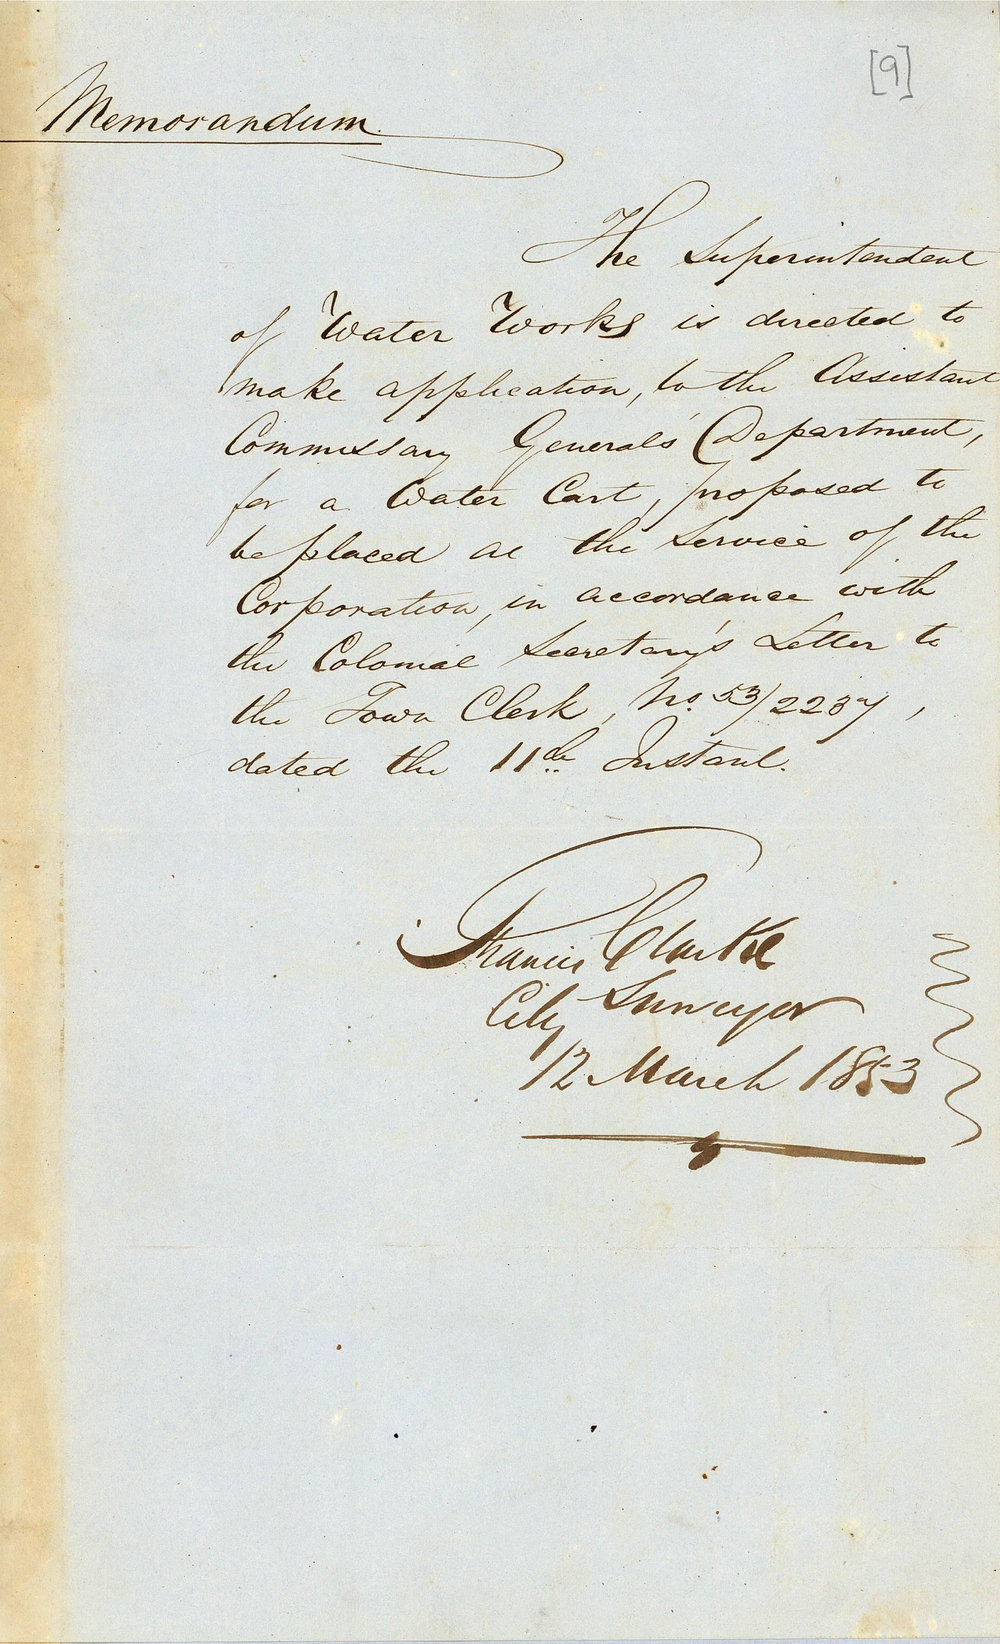 [9]
Memorandum.
The Superintendent
of Water Works is directed to
make application, to the Assistant
Commissary General's Department,
for a Water Cart, proposed to
be placed at the service of the
Corporation, in accordance with
the Colonial Secretary's Letter to
the Town Clerk, No. 53/2237,
dated the 11th Instant.
Francis Clarke
City Surveyor
12 March 1853